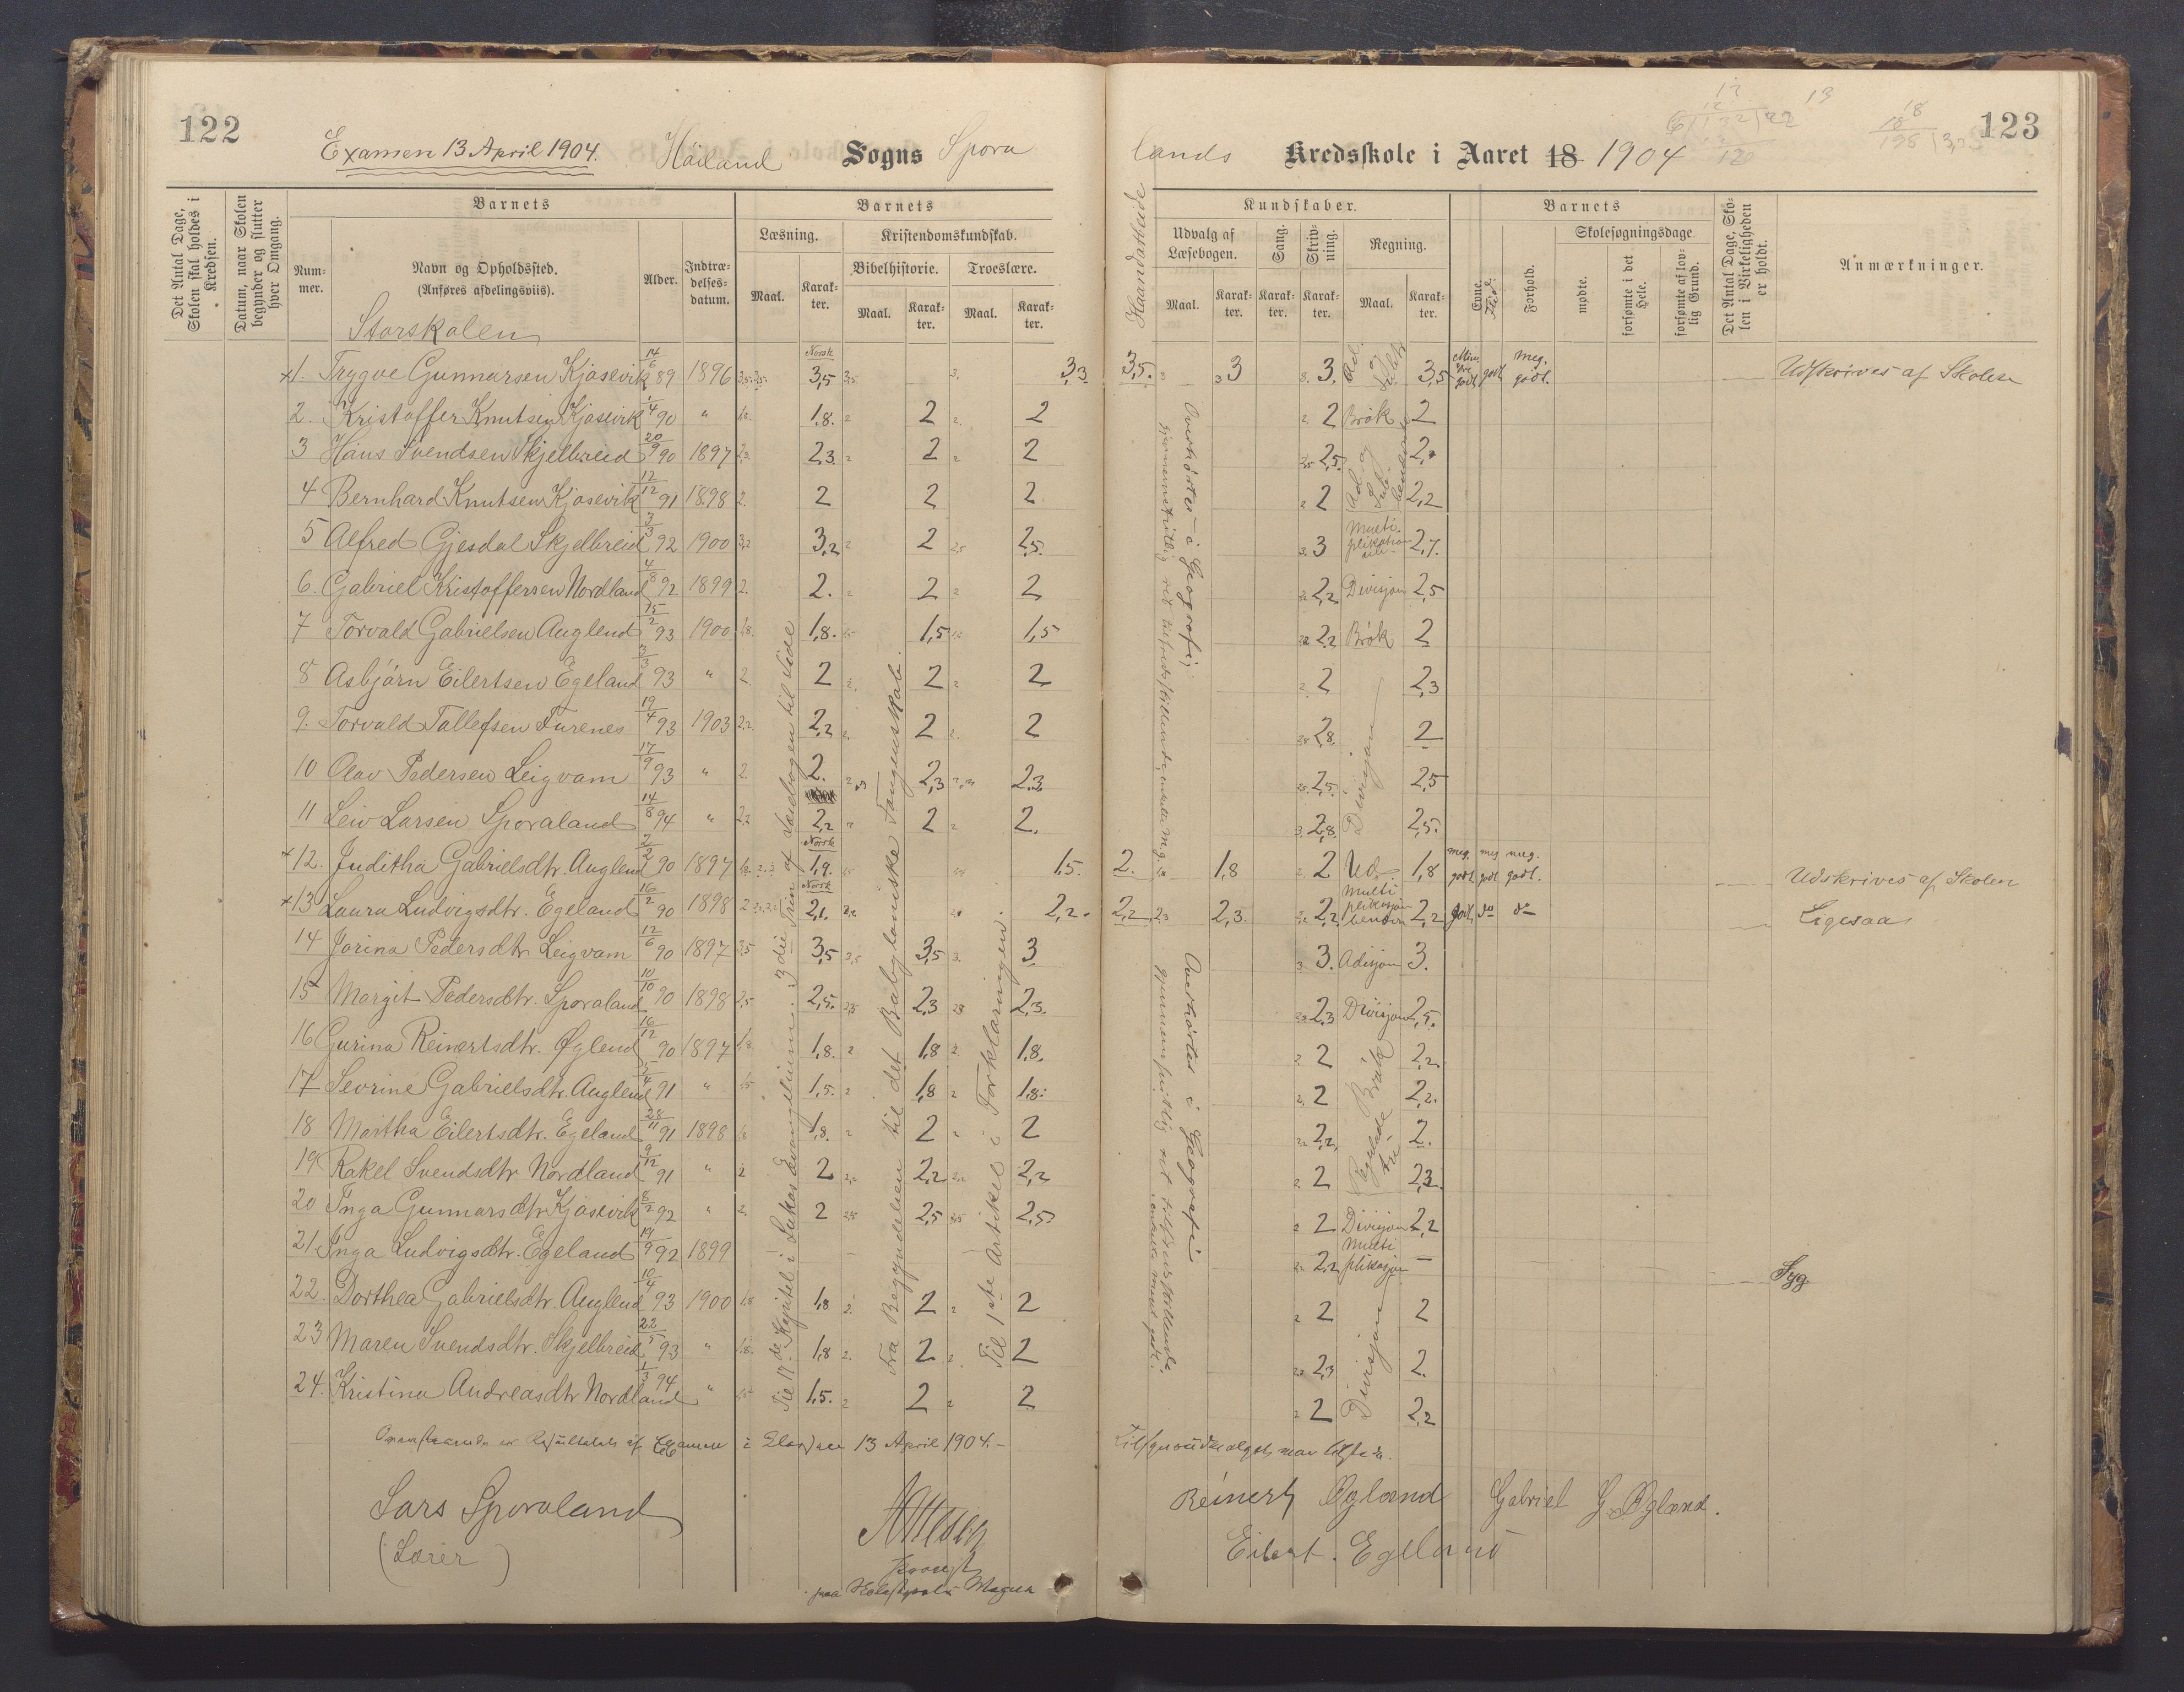 122
Examen 13 April 1904. Höiland Sogns Spora
lands Kredsskole i Aaret 18 1904
123
Det Antal Dage, Skolen skal holdes i Kredsen.
Datum, naar Skolen begynder og slutter hver Omgang.
Barnets
Num-mer.
Navn og Opholdssted.
(Anføres afdelingsviis).
Alder.
Indtræ-delses-datum.
Barnets
Læsning.
Maal. Karak-ter.
Kristendomskundskab.
Bibelhistorie. Troeslære.
Maal. Karak-ter. Maal. Karak-ter.
Haandarbeide
Kundskaber.
Udvalg af Læsebogen.
Maal. Karak-ter.
Sang. Karak-ter.
Skriv-ning. Karak-ter.
Regning.
Maal. Karak-ter.
Barnets
Evne. Flid.
Forhold.
Skolesøgningsdage.
mødte.
forsømte i det Hele.
forsømte af lov-lig Grund.
Det Antal Dage, Sko-len i Virkeligheden er holdt.
Anmærkninger.
Storskolen
×1. Trygve Gunnarsen Kjosevik 14/6 89 1896 Norsk 3,5 3,3 3,5. 3 3. 3,5 godt meg. godt. Udskrives af Skolen
2. Kristoffer Knutsen Kjosevik 1/4 90 " 1.8. 2 2 2 Brök 2
3 Hans Svendsen Skjelbreid 20/9 90 1897 2,3. 2 2 2,5.
4 Bernhard Knutsen Kjosevik 12/12 91 1898 2 2 2 2 2,2
5 Alfred Gjesdal Skjelbreid 3/3 92 1900 3,2 2 2,5. 3 Multiplikation 2,7.
6. Gabriel Kristoffersen Nordland 4/8 92 1899 2. 2 2 2,2 Divisjon 2,5
7 Torvald Gabrielsen Auglend 15/2 93 1900 1,8. 1,5 1,5 2,2 Brök 2
8 Asbjörn Eilertsen Egeland 3/3 93 " 2 2 2 2 2,3
9. Torvald Tallefsen Furenes 19/4 93 1903 2,2 2 2 2,8. Divisjon 2
10 Olav Pedersen Leigvam 17/9 93 " 2. 2,3 2,3. 2,5. 2,5
11 Leiv Larsen Sporaland 14/8 94 " 2,2 2 2. 2,8. 2,5.
×12. Juditha Gabrielsdtr. Auglend 2/2 90 1897 Norsk 1,9. 1,5. 2. 1,8 2 1,8 meg. godt meg godt meg. godt. Udskrives af Skolen
×13 Laura Ludvigsdtr. Egeland 16/2 90 1898 Norsk 2,1. 2,2. 2,2 2,3. 2,2 2,2 godt do do Ligesaa
14 Jorina Pedersdtr. Leigvam 12/6 90 1897 3,5 3,5 3 3. Adisjon 3.
15 Margit Pedersdtr. Sporaland 10/10 90 1898 2,5. 2,3 2,3. 2,3 Divisjon 2,5.
16 Gurina Reinertsdtr. Øglend 16/12 90 1897 1,8. 1,8 1,8. 2 Brök 2,2.
17 Sevrine Gabrielsdtr. Auglend 5/4 91 " 1,5. 1,8 1,8. 2 2,2.
18 Martha Eilertsdtr. Egeland 28/11 91 1898 1,8. 2 2 2,2, Regula de tri 2.
19 Rakel Svendsdtr Nordland 9/12 91 " 2 2,2 2,2 2 2,3.
20 Inga Gunnarsdtr Kjosevik 8/2 92 " 2 2,5 2,5 2 Divisjon 2,2
21 Inga Ludvigsdtr. Egeland 19/9 92 1899 — — — 2,2 Multiplikasjon — Syg
22. Dorthea Gabrielsdtr. Auglend 10/4 93 1900 1,8 2 2 2 Divisjon 2
23 Maren Svendsdtr. Skjelbreid 22/5 93 " 1,8 2 2 2,3 2.
24. Kristina Andreasdtr Nordland 1/3 94 " 1,5. 2 2 2 2,2
Til 17de Kapitel i Lukas Evangelium. 3die Trin af Læsebogen til Side
Fra Begyndelsen til det Babyloniske Fangenskab.
Til 1ste Artikel i Forklaringen.
Overhörtes i Geografi;
Overhörtes i Geografi
13 April 1904.
Lars Sporaland
(Lærer)
Provst
Reinert Øglænd Gabriel G Øglænd.
Eilert. Egeland